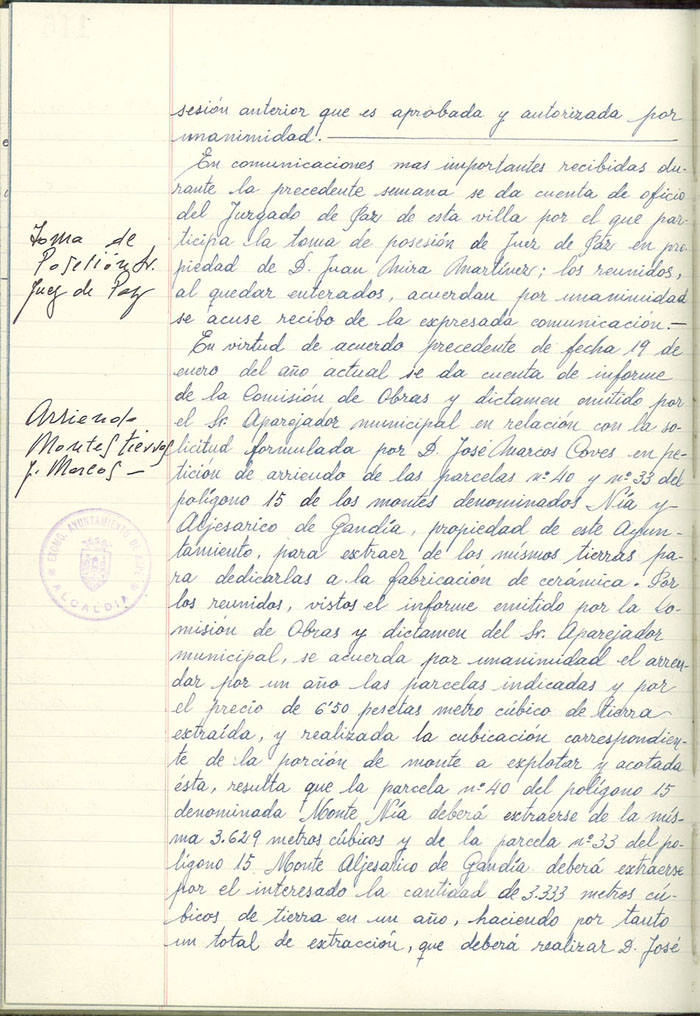 sesión anterior que es aprobada y autorizada por
unanimidad.
En comunicaciones mas importantes recibidas du-
rante la precedente semana se da cuenta de oficio
del Juzgado de Paz de esta villa por el que par-
ticipa la toma de posesión de Juez de Paz en pro
piedad de D. Juan Mira Martínez; los reunidos,
al quedar enterados, acuerdan por unanimidad
se acuse recibo de la expresada comunicación.-
Toma de
Posesión Sr.
Juez de Paz
En virtud de acuerdo precedente de fecha 19 de
enero del año actual se da cuenta de informe
de la Comisión de Obras y dictamen emitido por
el Sr. Aparejador municipal en relación con la so-
licitud formulada por D. Jose Marcos Coves en pe-
tición de arriendo de las parcelas nº 40 y nº 33 del
polígono 15 de los montes denominados Nía y
Aljesarico de Gandía, propiedad de este Ayun-
tamiento, para extraer de los mismos tierras pa-
ra dedicarlas a la fabricación de cerámica. Por
los reunidos, vistos el informe emitido por la Co-
misión de Obras y dictamen del Sr. Aparejador
municipal, se acuerda por unanimidad el arren-
dar por un año las parcelas indicadas y por
el precio de 6'50 pesetas metro cúbico de tierra
extraída, y realizada la cubicación correspondien-
te de la porción de monte a explotar y acotada
ésta, resulta que la parcela nº 40 del polígono 15
denominada Monte Nía deberá extraerse de la mis-
ma 3.629 metros cúbicos y de la parcela nº 33 del po-
lígono 15 Monte Aljesarico de Gandía deberá extraerse
por el interesado la cantidad de 3.333 metros cú-
bicos de tierra en un año, haciendo por tanto
un total de extracción, que deberá realizar D. José
Arriendo
Montes tierras
J. Marcos -
EXCMO. AYUNTAMIENTO DE
ALCALDIA